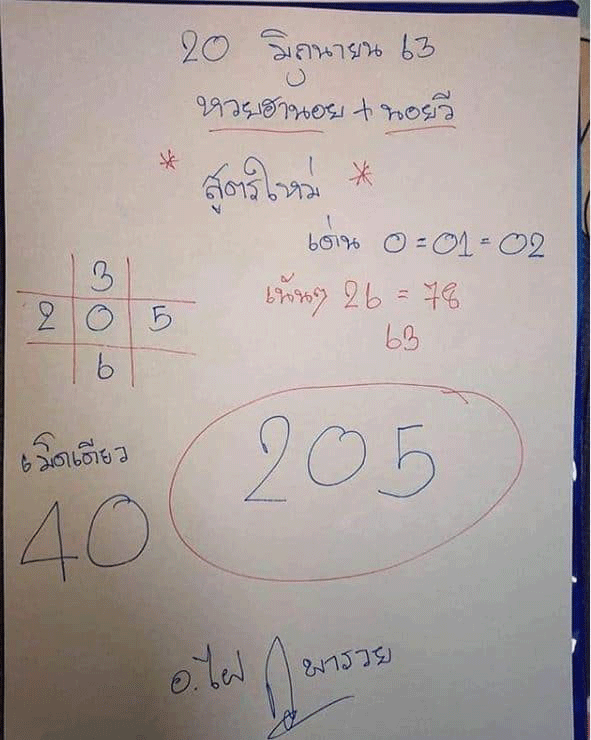 20 มิถุนายน 63
หวยฮานอย + นอยวี
* สูตรใหม่ *
เด่น 0 = 01 = 02
เน้นๆ 26 = 78
63
3
2 0 5
6
205
เม็ดเดียว
40
อ.ไผ่ ภูพารวย